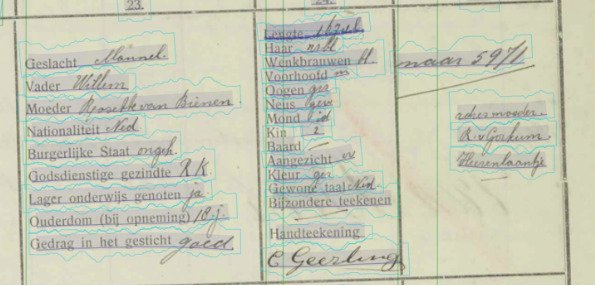 23.
24.
Geslacht Mannel.
Vader Willem
Moeder Rosette van Bienen
Nationaliteit Ned
Burgerlijke Staat ongeh.
Godsdienstige gezindte R.K.
Lager onderwijs genoten ja
Ouderdom (bij opneming) 18 j.
Gedrag in het gesticht goed
Lengte
Haar
Wenkbrauwen
Voorhoofd
Oogen
Neus gew
Mond id
Kin
Baard
Aangezicht
Kleur
Gewone taal Ned.
Bijzondere teekenen
Handteekening
C Geerling
naar 5971
adres moeder
R. v Gorkum
Heerenlaantje